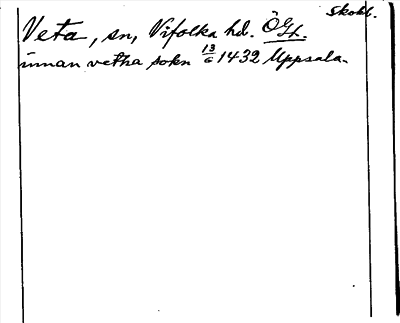 Skokl.
Veta, sn, Vifolka hd. ÖGL.
innan vetha sokn 13/6 1432 Uppsala.